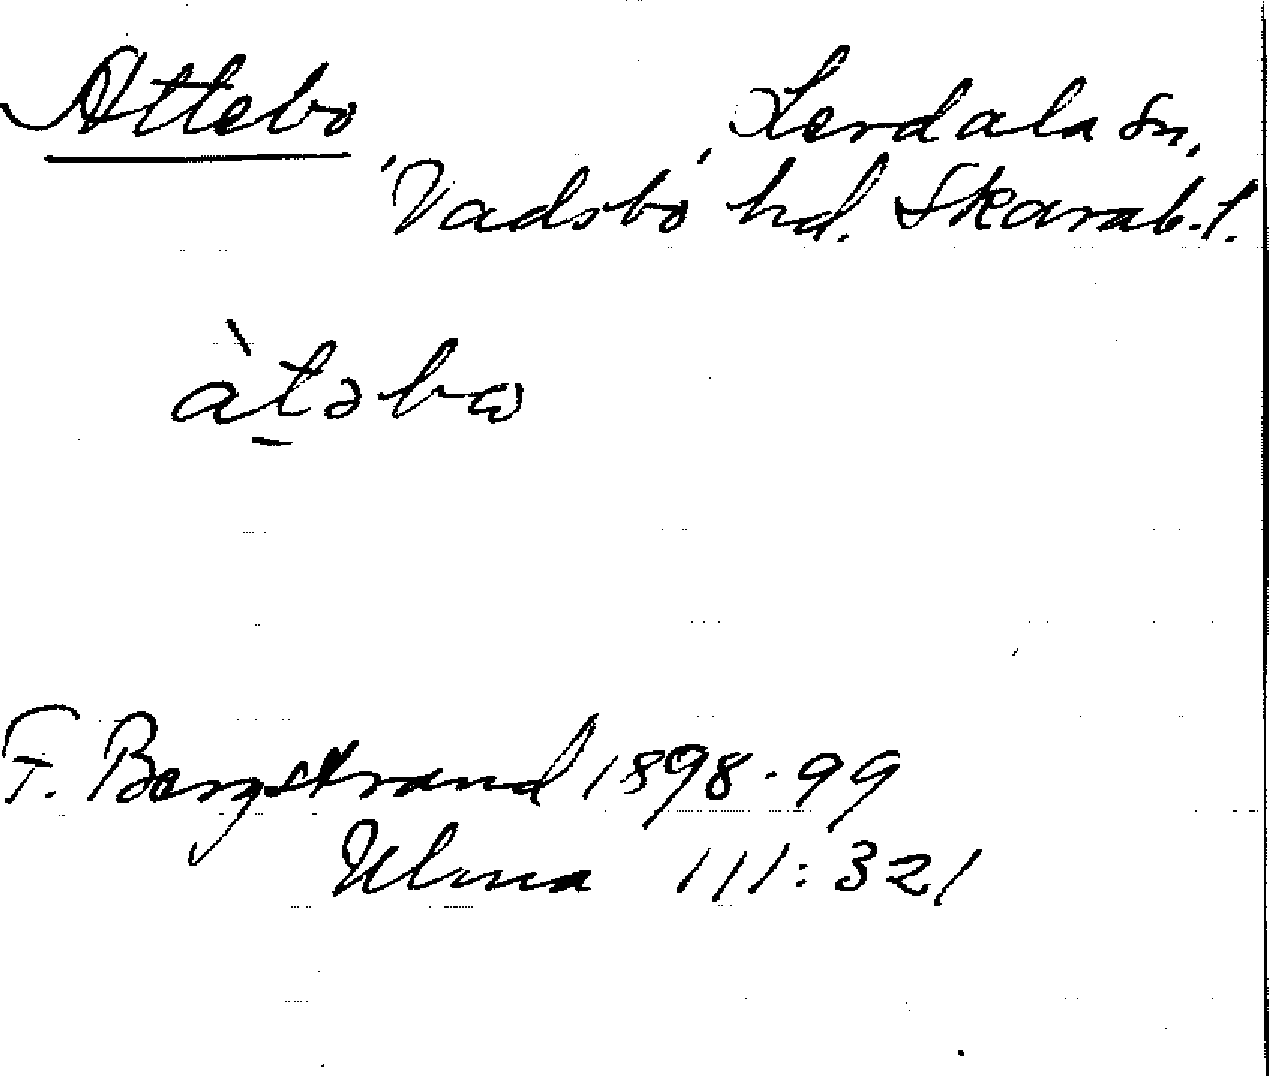 Attebo, Lerdala sn,
Vadsbo hd. Skarab.l.
àt̠əbɷ
F. Bergstrand 1898-99
Ulma 111:321